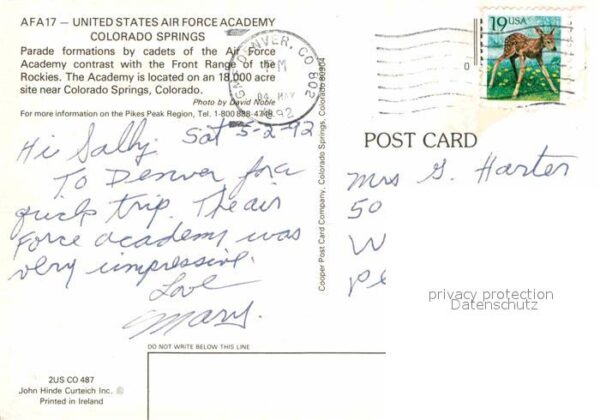 AFA17 — UNITED STATES AIR FORCE ACADEMY
COLORADO SPRINGS
Parade formations by cadets of the Air Force
Academy contrast with the Front Range of the
Rockies. The Academy is located on an 18,000 acre
site near Colorado Springs, Colorado.
Photo by David Noble
For more information on the Pikes Peak Region, Tel. 1-800 888-4748
DENVER, CO 802
PM
04 MAY
1992
19 USA
Hi Sally, Sat 5-2-92
To Denver for a
quick trip. The air
Force academy was
very impressive.
Love
Mary.
Cooper Post Card Company, Colorado Springs, Colorado 80904
POST CARD
Mrs G. Harter
50
W
Pe
privacy protection
Datenschutz
DO NOT WRITE BELOW THIS LINE
2US CO 487
John Hinde Curteich Inc. ©
Printed in Ireland